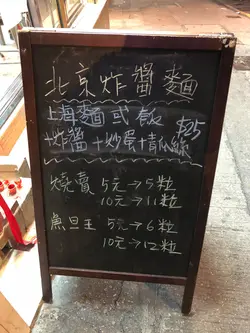 北京炸醬麵
上海麵或飯
+炸醬+炒蛋+青瓜絲 $25
燒賣 5元→5粒
10元→11粒
魚旦王 5元→6粒
10元→12粒